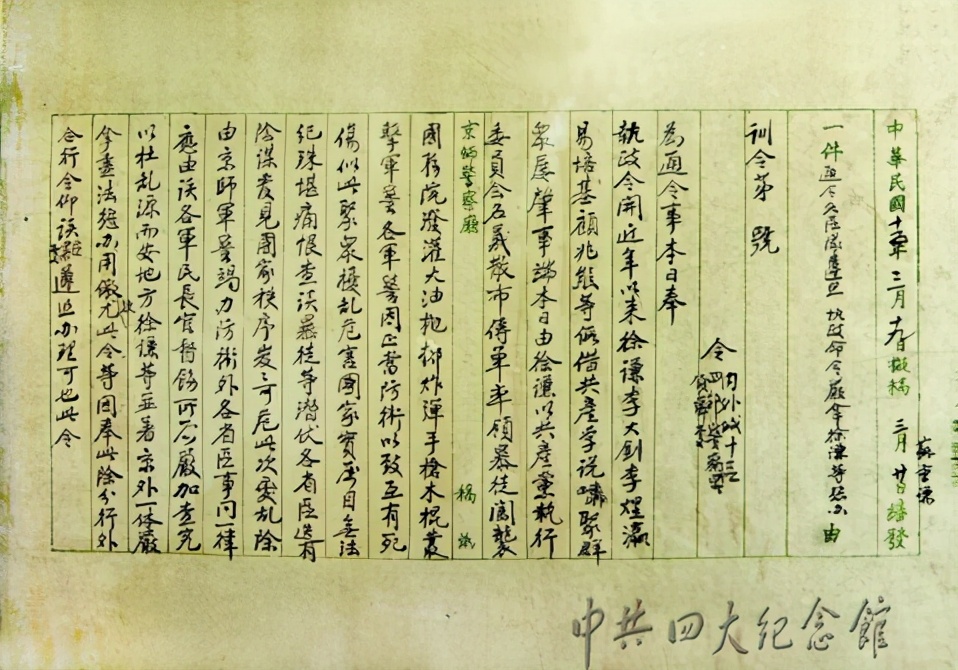 中華民國十五年三月十九日擬稿 三月廿日繕發
一件通令各區隊遵照 執政命令嚴拿徐謙等懲办 由
訓令第 號
令 內外城十三
四郊警察署
偵緝
為通令事本日奉
執政令開近年以來徐謙李大釗李煜瀛
易培基顧兆熊等假借共產學说嘯聚群
衆屡肇事端本日由徐謙以共產黨執行
委員会名義散布傳單率領暴徒闖襲
京師警察廳 稿紙
國務院潑灌大油抛擲炸彈手槍木棍叢
擊軍警各軍警因正當防衛以致互有死
傷似此聚衆擾乱危害國家實屬目無法
紀殊堪痛恨查该暴徒等潛伏各省區迭有
陰謀發見國家秩序岌岌可危此次变乱除
由京師軍警竭力防衛外各省區事同一律
應由该各軍民長官督飭所屬嚴加查究
以杜乱源而安地方徐謙等並著京外一体嚴
拿盡法懲办用儆效尤此令等因奉此除分行外
合行令仰该 遵照办理可也此令
中共四大纪念館